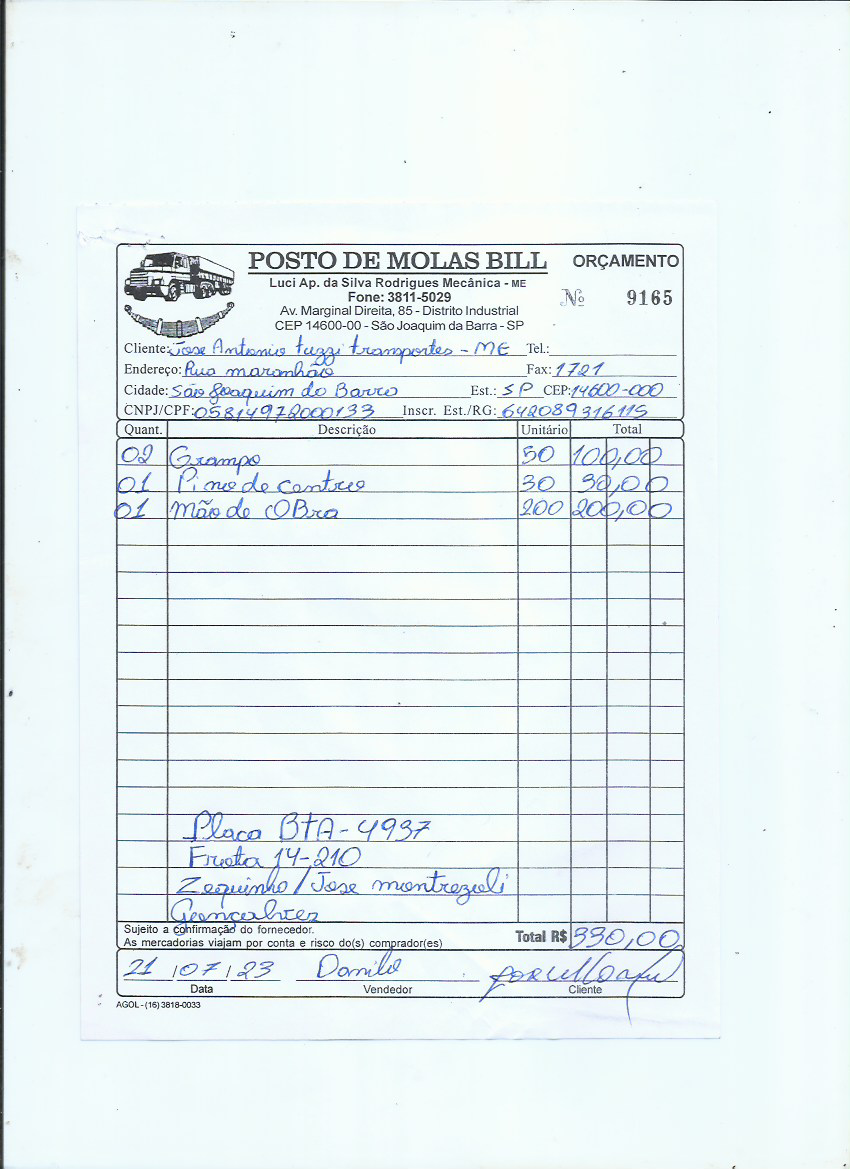 POSTO DE MOLAS BILL
ORÇAMENTO
Luci Ap. da Silva Rodrigues Mecânica - ME
Fone: 3811-5029
Nº 9165
Av. Marginal Direita, 85 - Distrito Industrial
CEP 14600-00 - São Joaquim da Barra - SP
Cliente: Jose Antonio tuzzi transportes - ME Tel.:
Endereço: Rua maranhão Fax: 1721
Cidade: São Joaquim do Barra Est.: SP CEP: 14600-000
CNPJ/CPF: 05814972000133 Inscr. Est./RG: 642089316115
Quant. Descrição Unitário Total
02 Grampo 50 100,00
01 Pino de centro 30 30,00
01 Mão de OBra 200 200,00
Placa BTA-4937
Frota 14-210
Zequinho / Jose
Sujeito a confirmação do fornecedor.
As mercadorias viajam por conta e risco do(s) comprador(es)
Total R$ 330,00
21/07/23 Danilo
Data Vendedor Cliente
AGOL - (16) 3818-0033